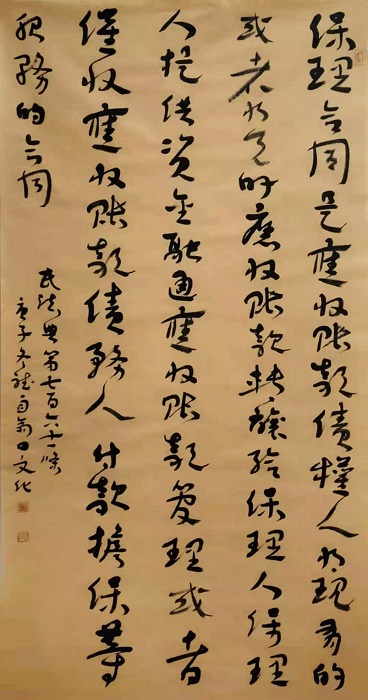 保理合同是應收账款债權人将現有的
或者将有的應收账款转讓给保理人保理
人提供资金融通應收账款管理或者
催收應收账款债務人付款擔保等
服務的合同
民法典第七百六十一條
庚子冬文化